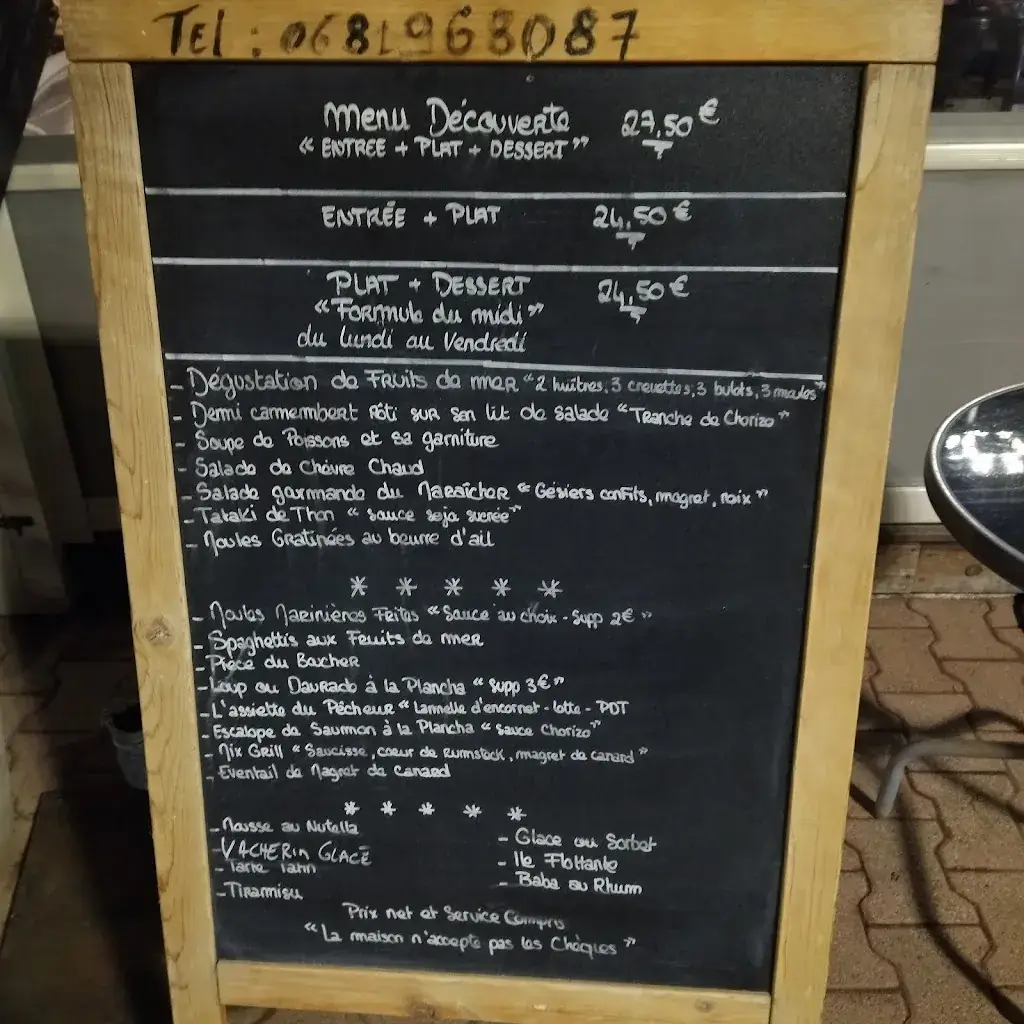 Tel : 0681963087
Menu Découverte 27,50 €
« ENTREE + PLAT + DESSERT »
ENTRÉE + PLAT 24,50 €
PLAT + DESSERT 24,50 €
« Formule du midi »
du lundi au Vendredi
- Dégustation de Fruits de mer « 2 huîtres, 3 crevettes, 3 bulots, 3 moules »
- Demi cammembert Rôti sur son lit de salade « Tranche de Chorizo »
- Soupe de Poissons et sa garniture
- Salade de Chèvre Chaud
- Salade gormande du Maraîcher « Gésiers confits, magret, noix »
- Tataki de Thon « sauce soja sucrée »
- Moules Gratinées au beurre d'ail
* * * * *
- Moules Marinières Frites « Sauce au choix - Supp 2€ »
- Spaghettis aux Fruits de mer
- Pièce du Boucher
- Loup ou Daurade à la Plancha « Supp 3€ »
- L'assiette du Pêcheur « Lamelle d'encornet - lotte - PDT
- Escalope de Saumon à la Plancha « Sauce Chorizo »
- Mix Grill « Saucisse, coeur de Rumsteck, magret de canard »
- Eventail de Magret de Canard
* * * * *
- Mousse au Nutella
- VACHERIN GLACÉ
- Tarte Tatin
- Tiramisu
- Glace ou Sorbet
- Ile Flottante
- Baba au Rhum
Prix net et Service Compris
« La maison n'accepte pas les Chèques »